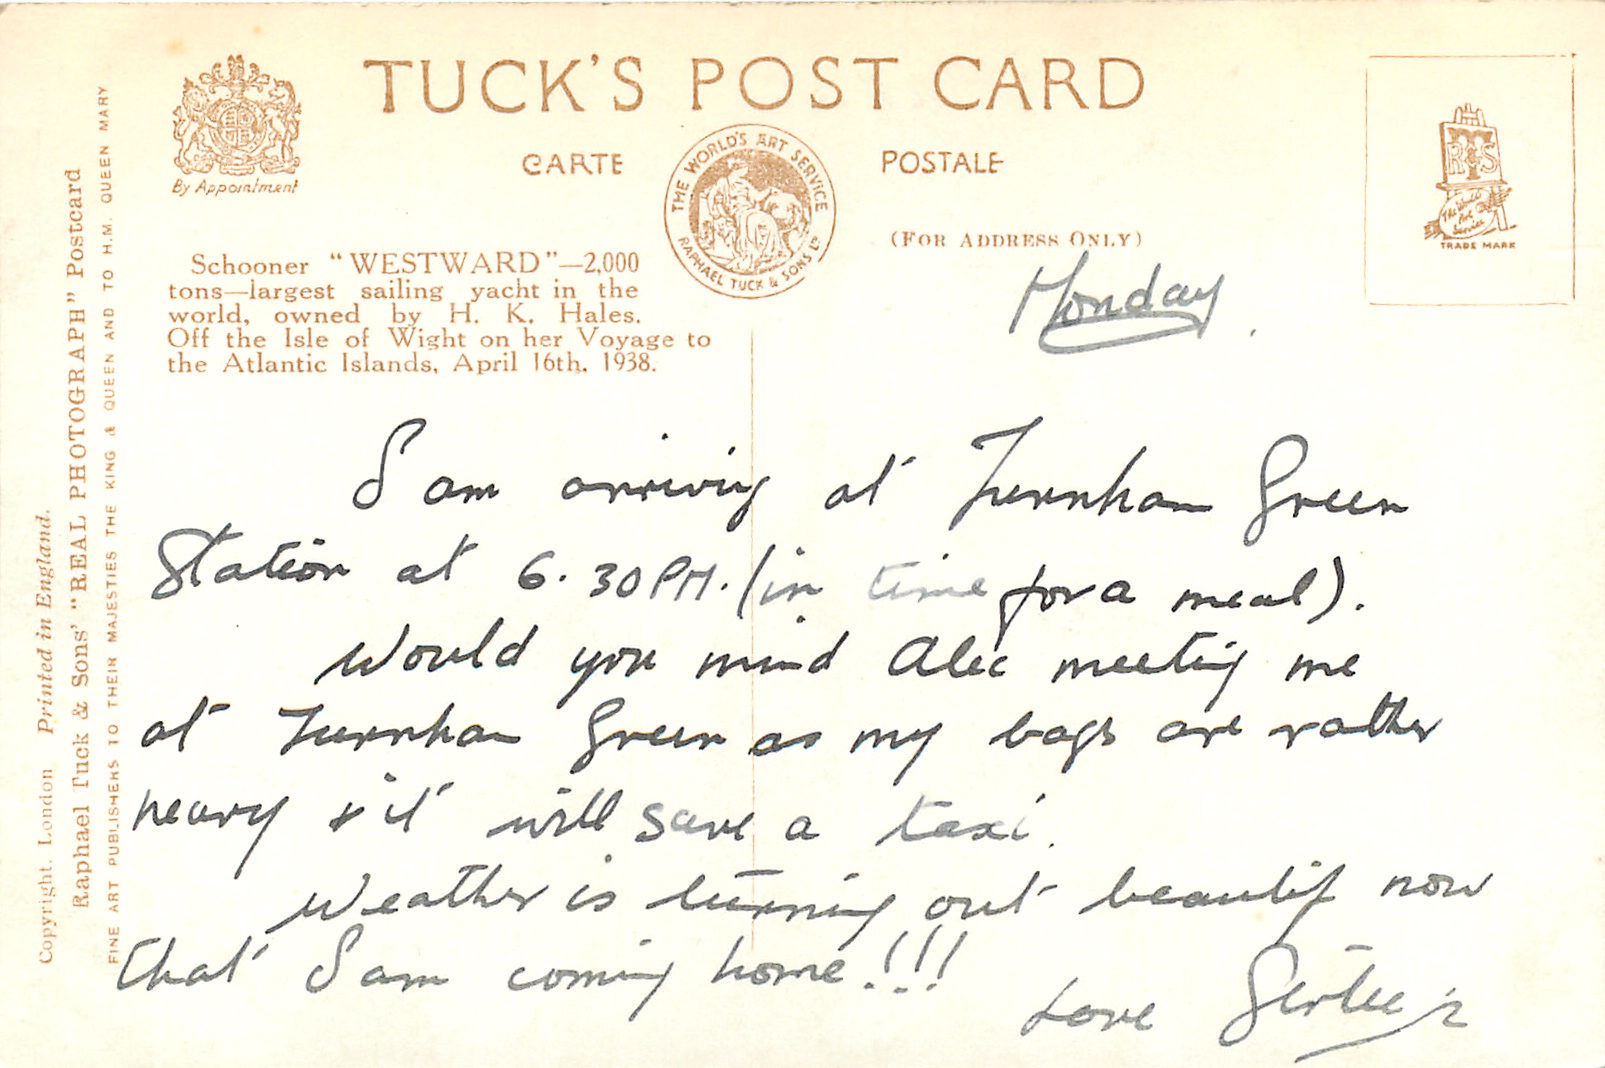 TUCK'S POST CARD
By Appointment
CARTE POSTALE
THE WORLD'S ART SERVICE
RAPHAEL TUCK & SONS LD
(FOR ADDRESS ONLY)
RTS
The World's Art Service
TRADE MARK
Schooner "WESTWARD"—2,000
tons—largest sailing yacht in the
world, owned by H. K. Hales.
Off the Isle of Wight on her Voyage to
the Atlantic Islands, April 16th, 1938.
Copyright. London Printed in England.
Raphael Tuck & Sons' "REAL PHOTOGRAPH" Postcard
FINE ART PUBLISHERS TO THEIR MAJESTIES THE KING & QUEEN AND TO H.M. QUEEN MARY
Monday.
I am arriving at Turnham Green
Station at 6.30PM. (in time for a meal).
Would you mind Alec meeting me
at Turnham Green as my bags are rather
heavy & it will save a taxi.
Weather is turning out beautif now
that I am coming home!!!
Love